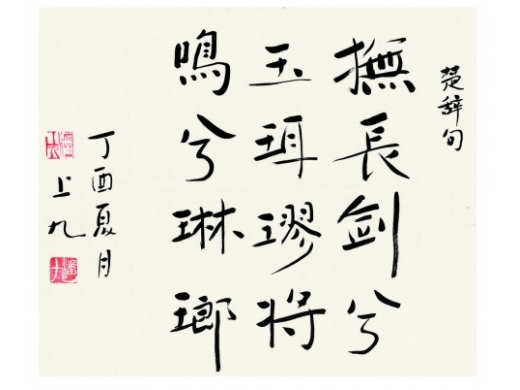 楚辞句
撫長剑兮
玉珥璆将
鳴兮琳瑯
丁酉夏月
上九